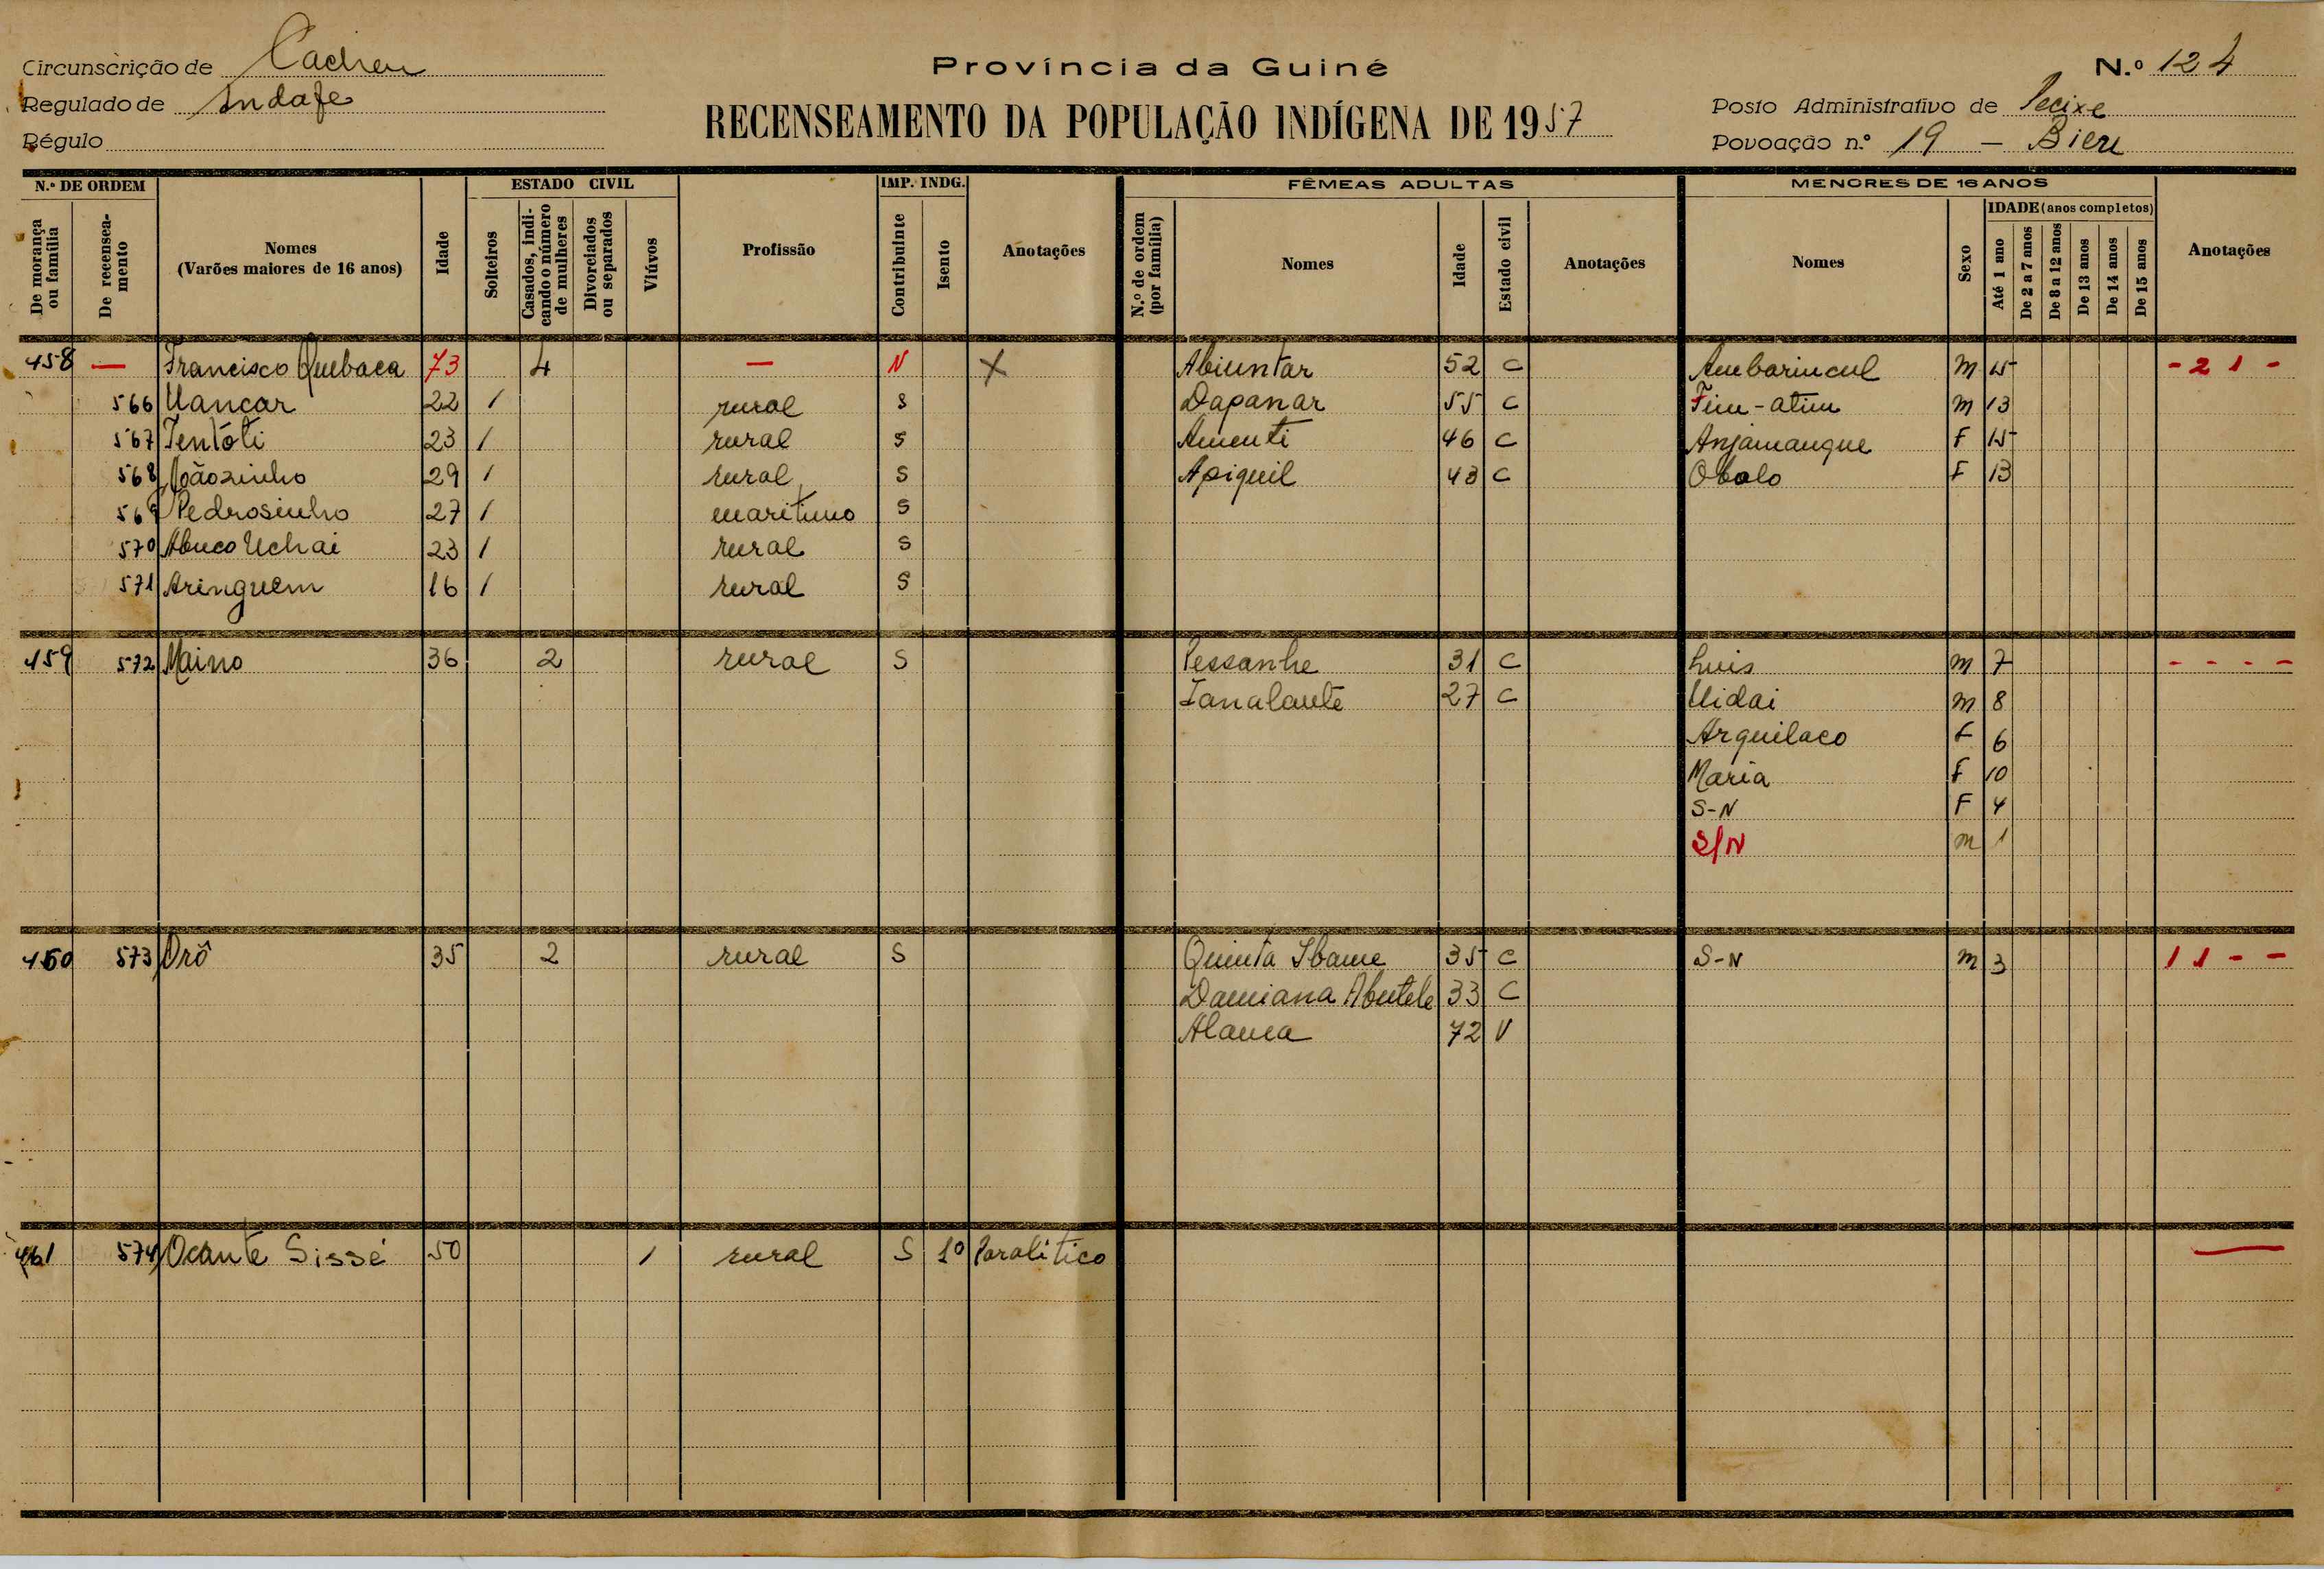 Circunscrição de Cacheu
Regulado de Indafe
Régulo
Província da Guiné
RECENSEAMENTO DA POPULAÇÃO INDÍGENA DE 1957
N.º 124
Posto Administrativo de Pecixe
Povoação n.º 19 – Biere
N.º DE ORDEM
De morança ou família
De recenseamento
Nomes
(Varões maiores de 16 anos)
Idade
ESTADO CIVIL
Solteiros
Casados, indicando o número de mulheres
Divorciados ou separados
Viúvos
Profissão
IMP. INDG.
Contribuinte
Isento
Anotações
FÊMEAS ADULTAS
N.º de ordem (por família)
Nomes
Idade
Estado civil
Anotações
MENORES DE 16 ANOS
Nomes
Sexo
IDADE (anos completos)
Até 1 ano
De 2 a 7 anos
De 8 a 12 anos
De 13 anos
De 14 anos
De 15 anos
Anotações
458 — Francisco Quebaca 73 4 — N X Abiuntar 52 C Ambarincul M 15 - 2 1 -
566 Uancar 22 1 rural S Dapanar 55 C Fim-atim M 13
567 Tentóti 23 1 rural S Amenti 46 C Anjamanque F 15
568 Joãozinho 29 1 rural S Apiquil 43 C Obolo F 13
569 Pedrosinho 27 1 maritimo S
570 Abuco Uchai 23 1 rural S
571 Aringuem 16 1 rural S
459 572 Maino 36 2 rural S Pessanhe 31 C Luis M 7 - - - -
Tanalante 27 C Uidai M 8
Arquilaco F 6
Maria F 10
S-N F 4
S/N M 1
460 573 Orô 35 2 rural S Quinta Ibame 35 C S-N M 3 1 1 - -
Damiana Abutele 33 C
Alama 72 V
461 574 Ocante Sissé 50 1 rural S 1º Paralitico —